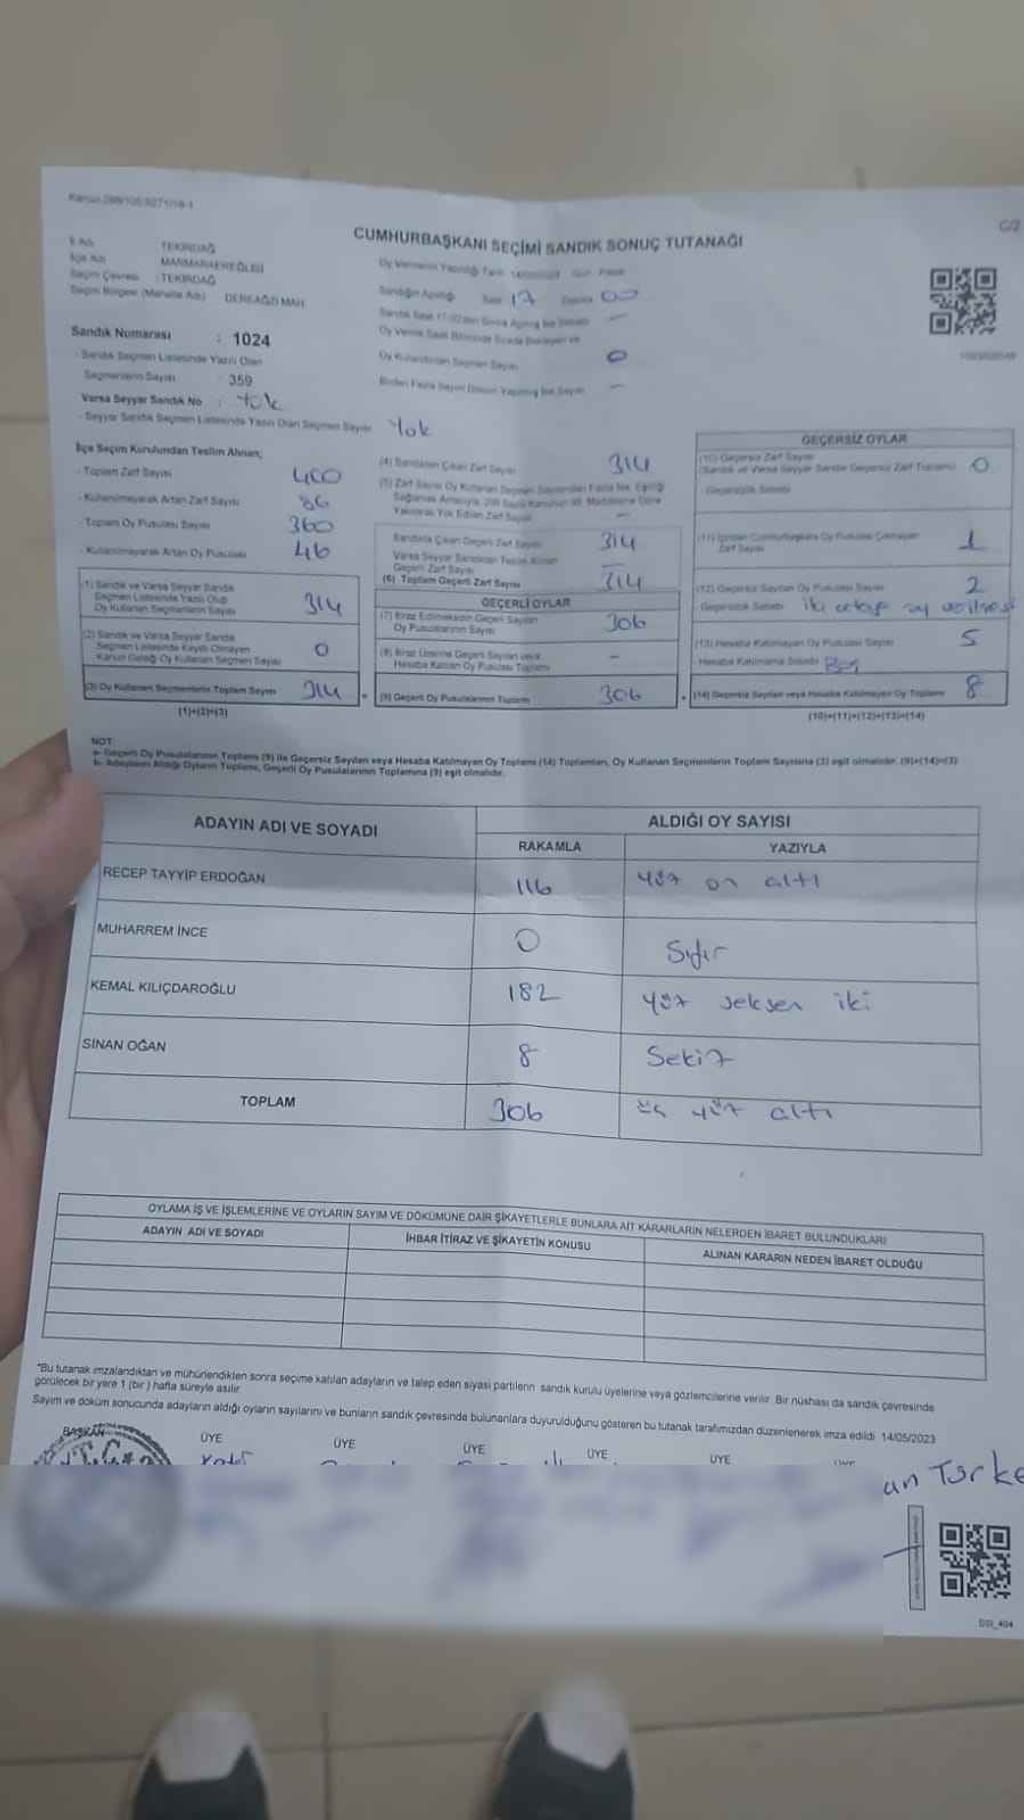 CUMHURBAŞKANI SEÇİMİ SANDIK SONUÇ TUTANAĞI
C/2
İl Adı : TEKİRDAĞ
İlçe Adı : MARMARAEREĞLİSİ
Seçim Çevresi : TEKİRDAĞ
Seçim Bölgesi (Mahalle Adı) : DEREAĞZI MAH.
Sandık Numarası : 1024
Sandık Seçmen Listesinde Yazılı Olan
Seçmenlerin Sayısı : 359
Varsa Seyyar Sandık No : Yok
Seyyar Sandık Seçmen Listesinde Yazılı Olan Seçmen Sayısı Yok
Sandığın Açıldığı Saat 17 00
Oy Kullandırılan Seçmen Sayısı 0
İlçe Seçim Kurulundan Teslim Alınan;
- Toplam Zarf Sayısı 400
- Kullanılmayarak Artan Zarf Sayısı 86
- Toplam Oy Pusulası Sayısı 360
- Kullanılmayarak Artan Oy Pusulası 46
(1) Sandık ve Varsa Seyyar Sandık
Seçmen Listesinde Yazılı Olup
Oy Kullanan Seçmenlerin Sayısı 314
(2) Sandık ve Varsa Seyyar Sandık
Seçmen Listesinde Kayıtlı Olmayan
Kanun Gereği Oy Kullanan Seçmen Sayısı 0
(3) Oy Kullanan Seçmenlerin Toplam Sayısı 314
(1)+(2)=(3)
(4) Sandıktan Çıkan Zarf Sayısı 314
Sandıkta Çıkan Geçerli Zarf Sayısı 314
(6) Toplam Geçerli Zarf Sayısı 314
GEÇERLİ OYLAR
(7) İtiraz Edilmeksizin Geçerli Sayılan
Oy Pusulalarının Sayısı 306
(8) İtiraz Üzerine Geçerli Sayılan veya
Hesaba Katılan Oy Pusulası Toplamı -
(9) Geçerli Oy Pusulalarının Toplamı 306
GEÇERSİZ OYLAR
(10) Geçersiz Zarf Sayısı
(Sandık ve Varsa Seyyar Sandık Geçersiz Zarf Toplamı) 0
Geçersizlik Sebebi
(11) İçinden Cumhurbaşkanı Oy Pusulası Çıkmayan
Zarf Sayısı 1
(12) Geçersiz Sayılan Oy Pusulası Sayısı 2
Geçersizlik Sebebi iki adaya oy verilmesi
(13) Hesaba Katılmayan Oy Pusulası Sayısı 5
Hesaba Katılmama Sebebi Boş
(14) Geçersiz Sayılan veya Hesaba Katılmayan Oy Toplamı 8
(10)+(11)+(12)+(13)=(14)
NOT:
a- Geçerli Oy Pusulalarının Toplamı (9) ile Geçersiz Sayılan veya Hesaba Katılmayan Oy Toplamı (14) Toplamları, Oy Kullanan Seçmenlerin Toplam Sayısına (3) eşit olmalıdır. (9)+(14)=(3)
b- Adayların Aldığı Oyların Toplamı, Geçerli Oy Pusulalarının Toplamına (9) eşit olmalıdır.
ADAYIN ADI VE SOYADI ALDIĞI OY SAYISI
RAKAMLA YAZIYLA
RECEP TAYYİP ERDOĞAN 116 yüz on altı
MUHARREM İNCE 0 Sıfır
KEMAL KILIÇDAROĞLU 182 yüz seksen iki
SİNAN OĞAN 8 Sekiz
TOPLAM 306 üç yüz altı
OYLAMA İŞ VE İŞLEMLERİNE VE OYLARIN SAYIM VE DÖKÜMÜNE DAİR ŞİKAYETLERLE BUNLARA AİT KARARLARIN NELERDEN İBARET BULUNDUKLARI
ADAYIN ADI VE SOYADI İHBAR İTİRAZ VE ŞİKAYETİN KONUSU ALINAN KARARIN NEDEN İBARET OLDUĞU
*Bu tutanak imzalandıktan ve mühürlendikten sonra seçime katılan adayların ve talep eden siyasi partilerin sandık kurulu üyelerine veya gözlemcilerine verilir. Bir nüshası da sandık çevresinde
görülecek bir yere 1 (bir) hafta süreyle asılır.
Sayım ve döküm sonucunda adayların aldığı oyların sayılarını ve bunların sandık çevresinde bulunanlara duyurulduğunu gösteren bu tutanak tarafımızdan düzenlenerek imza edildi. 14/05/2023
BAŞKAN ÜYE ÜYE ÜYE ÜYE ÜYE
T.C.